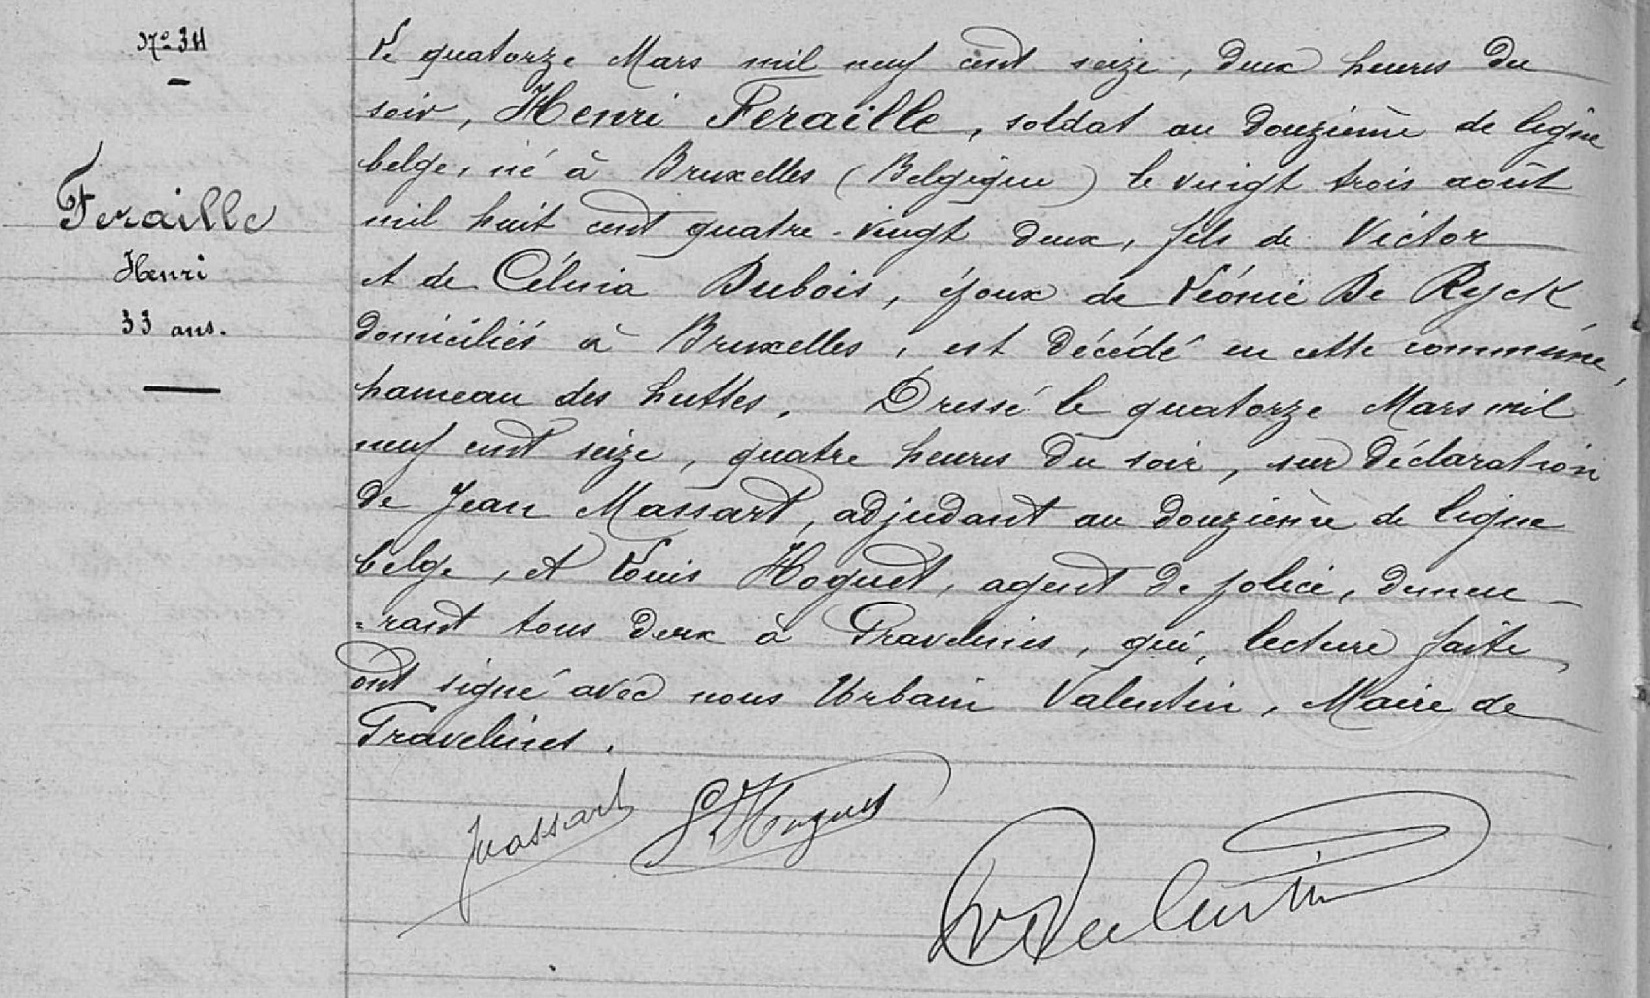 N° 34
Feraille
Henri
33 ans.
Le quatorze Mars mil neuf cent seize, deux heures du
soir, Henri Feraille, soldat au douzième de ligne
belge, né à Bruxelles (Belgique) le vingt trois août
mil huit cent quatre-vingt deux, fils de Victor
et de Célinia Dubois, époux de Léonie De Ryck
domiciliés à Bruxelles, est décédé en cette commune,
hameau des huttes. Dressé le quatorze Mars mil
neuf cent seize, quatre heures du soir, sur déclaration
de Jean Massart, adjudant au douzième de ligne
belge, et Louis Hoguet, agent de police, demeu-
=rant tous deux à Gravelines, qui, lecture faite,
ont signé avec nous Urbain Valentin, Maire de
Gravelines.
JMassart LHoguet
UValentin